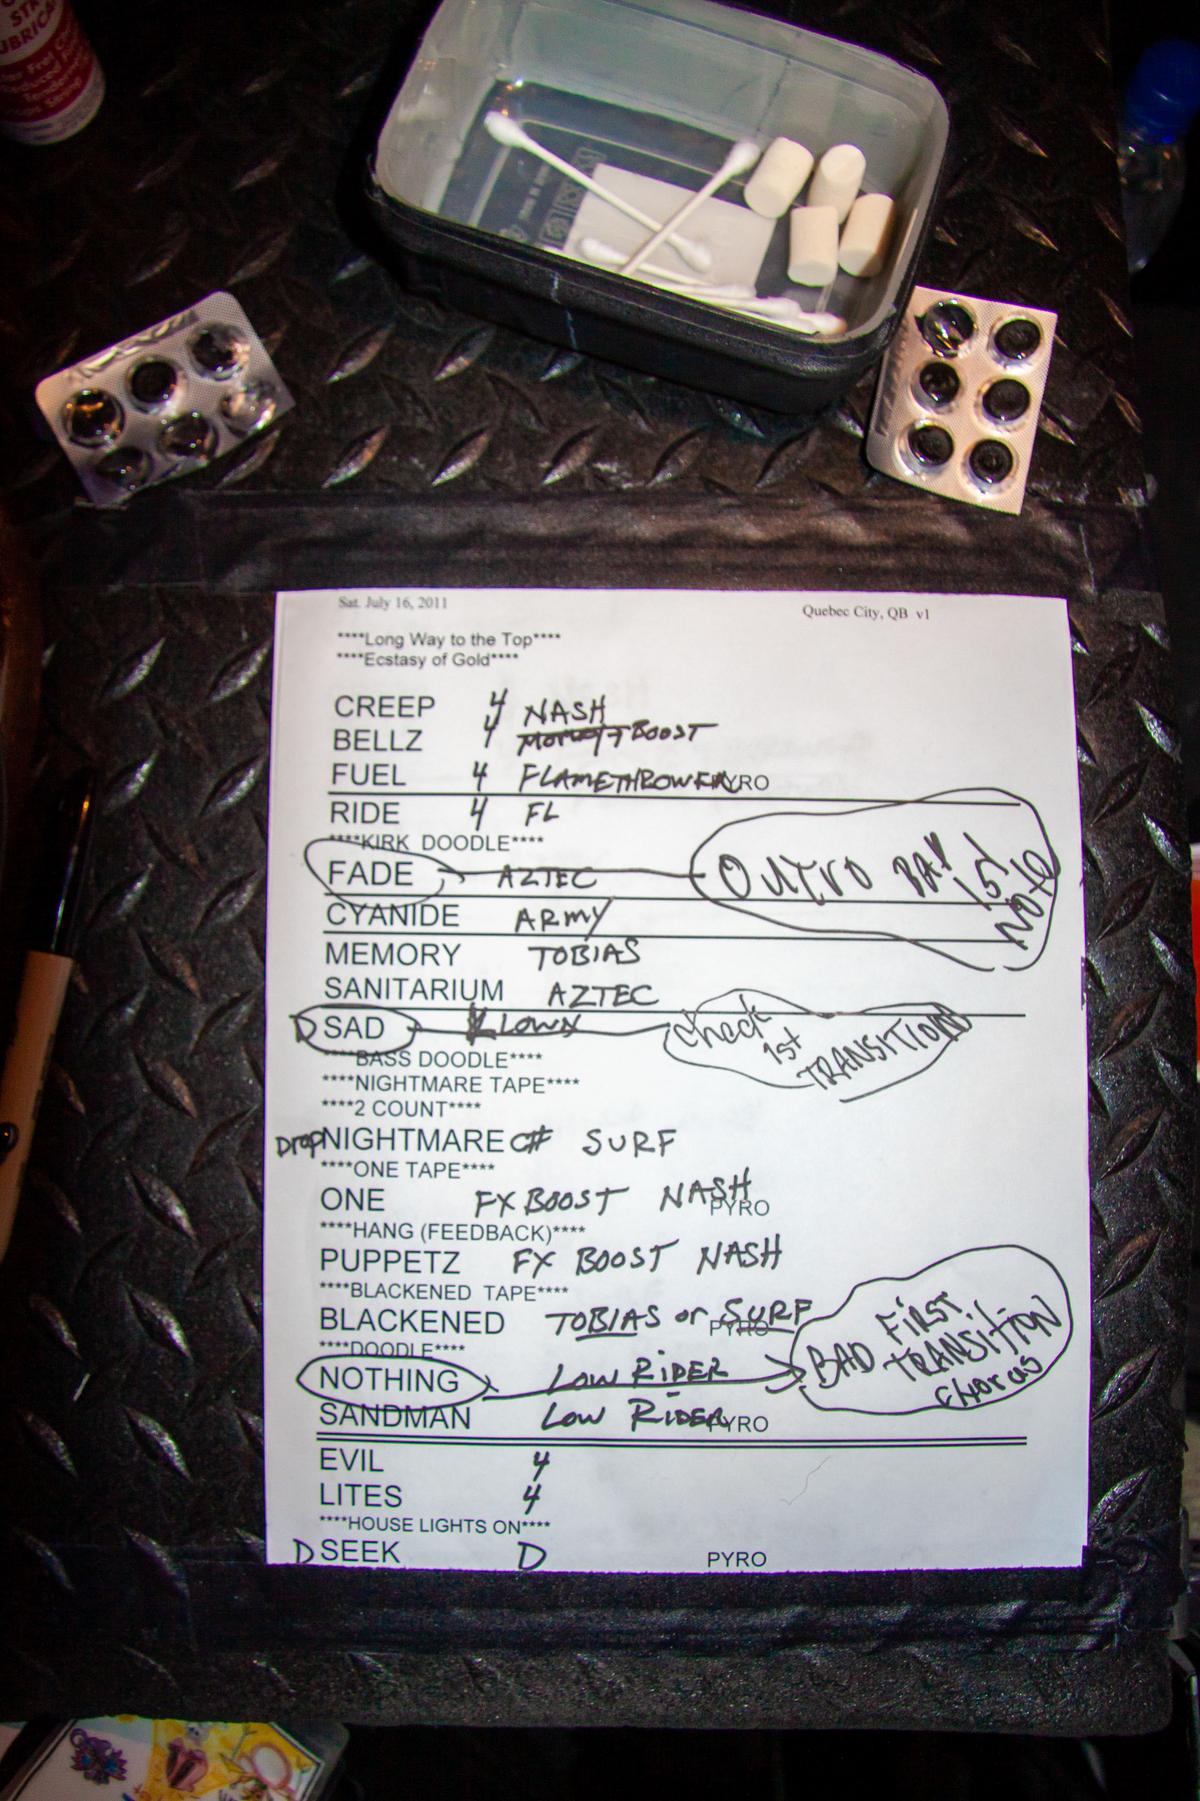 Sat. July 16, 2011 Quebec City, QB v1
****Long Way to the Top****
****Ecstasy of Gold****
CREEP 4 NASH
BELLZ 4 BOOST
FUEL 4 FLAMETHROWER PYRO
RIDE 4 FL
****KIRK DOODLE****
FADE AZTEC OUTRO BAD 1st NOTE
CYANIDE ARMY
MEMORY TOBIAS
SANITARIUM AZTEC
D SAD KLOWN check 1st TRANSITION
****BASS DOODLE****
****NIGHTMARE TAPE****
****2 COUNT****
Drop NIGHTMARE C# SURF
****ONE TAPE****
ONE FX BOOST NASH PYRO
****HANG (FEEDBACK)****
PUPPETZ FX BOOST NASH
****BLACKENED TAPE****
BLACKENED TOBIAS or SURF PYRO
****DOODLE****
NOTHING LOW RIDER BAD FIRST TRANSITION chorus
SANDMAN LOW RIDER PYRO
EVIL 4
LITES 4
****HOUSE LIGHTS ON****
D SEEK D PYRO